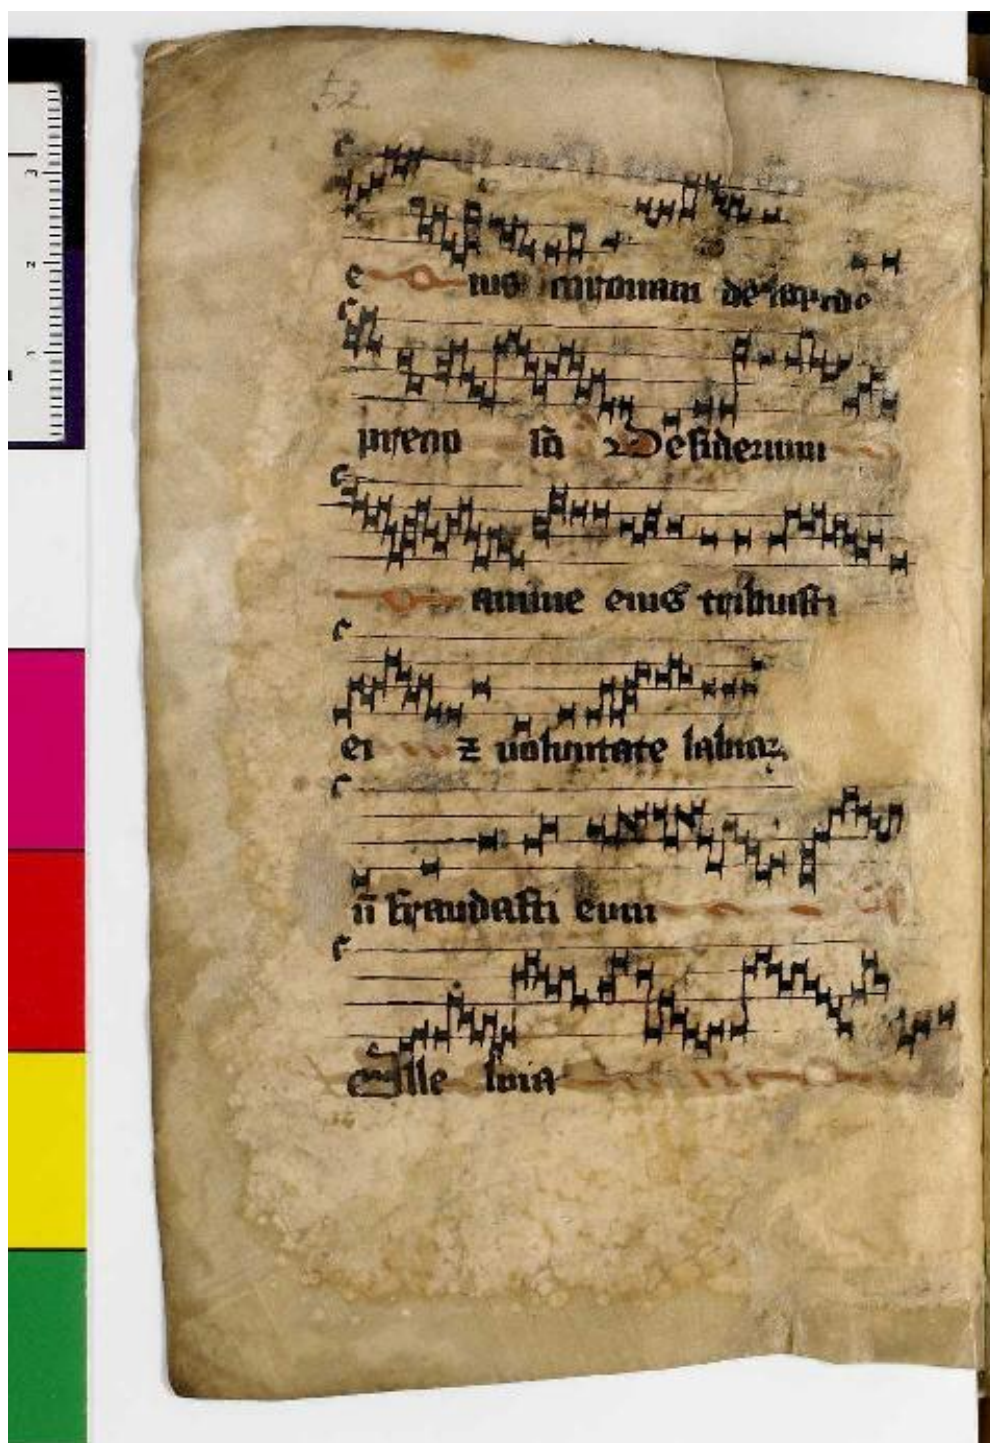 52
e ius coronam de lapide
precio so Desiderium
anime eius tribuisti
ei z uoluntate labioꝝ
n̄ fraudasti eum
Alle luia